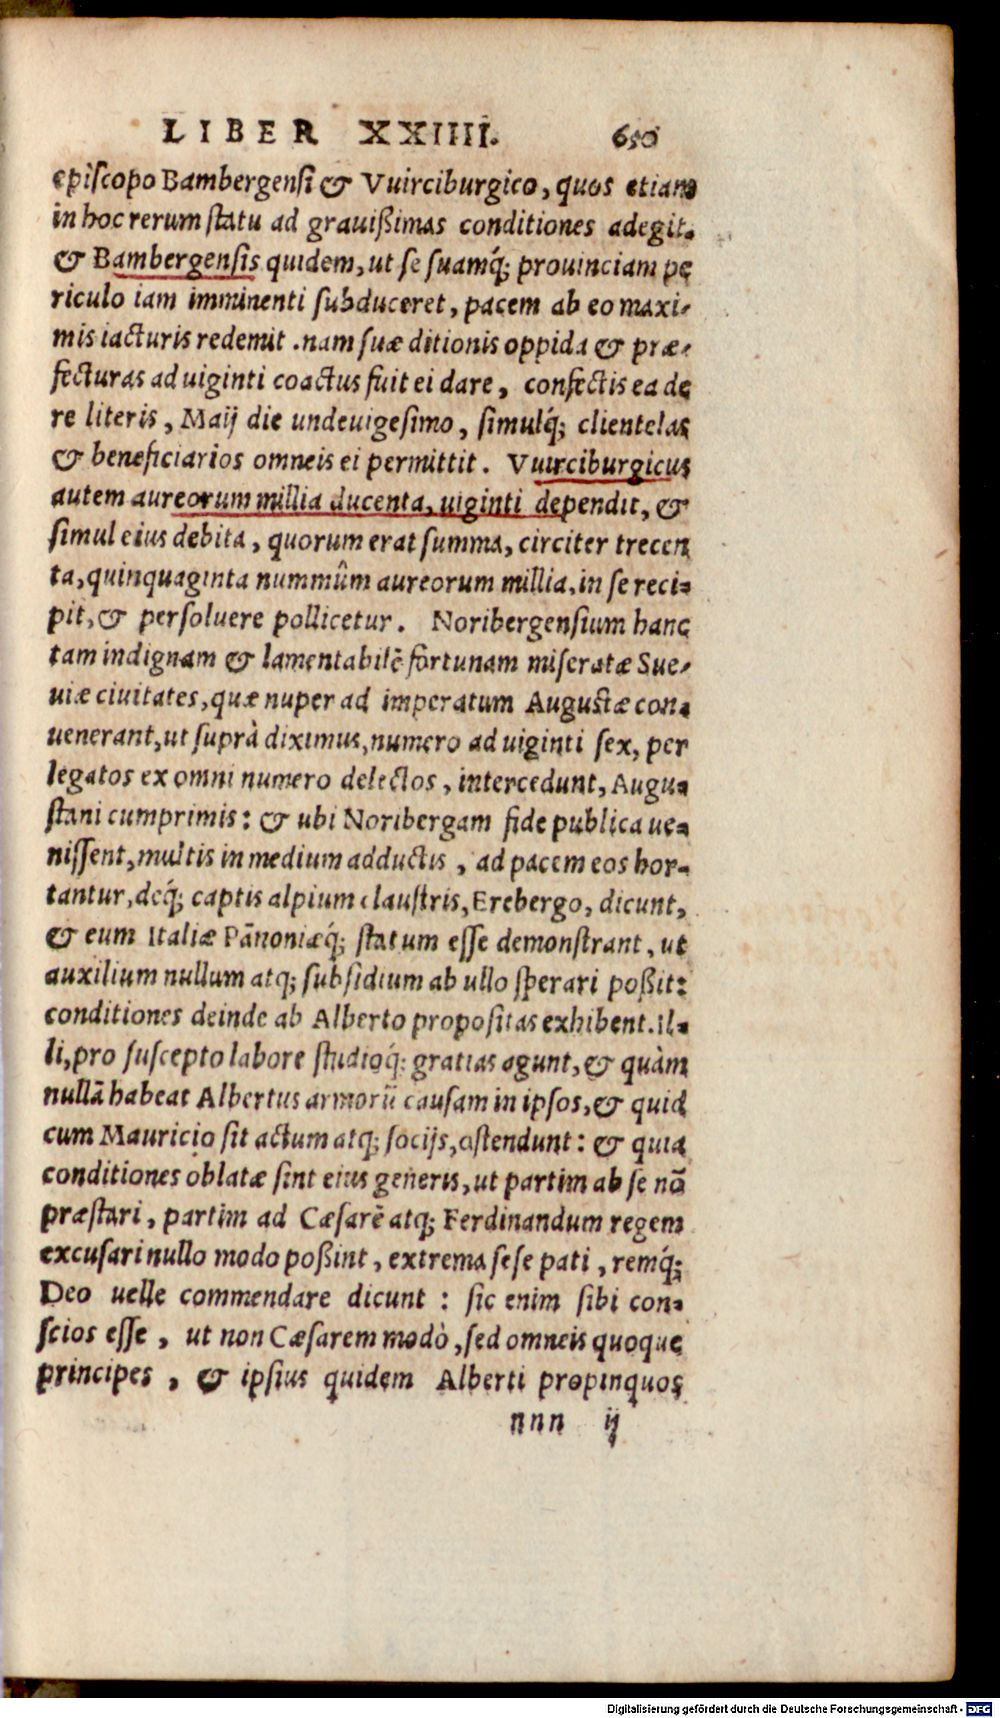 LIBER XXIIII. 650
episcopo Bambergensi & Vuirciburgico, quos etiam
in hoc rerum statu ad grauißimas conditiones adegit.
& Bambergensis quidem, ut se suamq́; prouinciam pe
riculo iam imminenti subduceret, pacem ab eo maxi-
mis iacturis redemit .nam suæ ditionis oppida & præ-
fecturas ad uiginti coactus fuit ei dare, confectis ea de
re literis, Maij die undeuigesimo, simulq́; clientelas
& beneficiarios omneis ei permittit. Vuirciburgicus
autem aureorum millia ducenta, uiginti dependit, &
simul eius debita, quorum erat summa, circiter trecen
ta, quinquaginta nummûm aureorum millia, in se reci-
pit, & persoluere pollicetur. Noribergensium hanc
tam indignam & lamentabilē fortunam miseratæ Sue-
uiæ ciuitates, quæ nuper ad imperatum Augustæ con-
uenerant, ut suprà diximus, numero ad uiginti sex, per
legatos ex omni numero delectos, intercedunt, Augu-
stani cumprimis: & ubi Noribergam fide publica ue-
nissent, multis in medium adductis, ad pacem eos hor-
tantur, deq́; captis alpium claustris, Erebergo, dicunt,
& eum Italiæ Pānoniæq́; statum esse demonstrant, ut
auxilium nullum atq; subsidium ab ullo sperari poßit:
conditiones deinde ab Alberto propositas exhibent. Il-
li, pro suscepto labore studioq́; gratias agunt, & quàm
nullā habeat Albertus armorū causam in ipsos, & quid
cum Mauricio sit actum atq; socijs, ostendunt: & quia
conditiones oblatæ sint eius generis, ut partim ab se nō
præstari, partim ad Cæsarē atq; Ferdinandum regem
excusari nullo modo poßint, extrema sese pati, remq́;
Deo uelle commendare dicunt : sic enim sibi con-
scios esse, ut non Cæsarem modò, sed omneis quoque
principes, & ipsius quidem Alberti propinquos
nnn ij
Digitalisierung gefördert durch die Deutsche Forschungsgemeinschaft - DFG